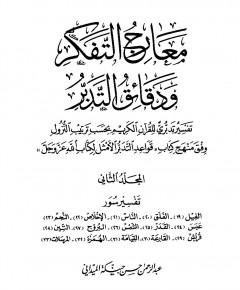 معارج التفكر
ودقائق التدبر
تفسير تدبري للقرآن الكريم بحسب ترتيب النزول
وفق منهج كتاب «قواعد التدبر الأمثل لكتاب الله عز وجل»
المجلد الثاني
تفسير سور
الفيل (١٩)، الفلق (٢٠)، الناس (٢١)، الإخلاص (٢٢)، النجم (٢٣)
عبس (٢٤)، القدر (٢٥)، الشمس (٢٦)، البروج (٢٧)، التين (٢٨)
قريش (٢٩)، القارعة (٣٠)، القيامة (٣١)، الهمزة (٣٢)، المرسلات (٣٣)
عبد الرحمن حسن حبنكة الميداني